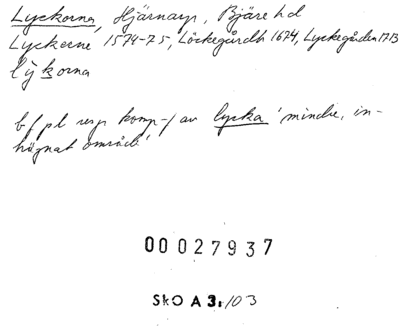 Lyckorna, Hjärnarp, Bjäre hd
Lyckerne 1574-75, Löckegårdh 1674, Lyckegården 1713
lỳkorna
bf pl resp komp-f av lycka 'mindre, in-
hägnat område'
00027937
SkO A 3:103